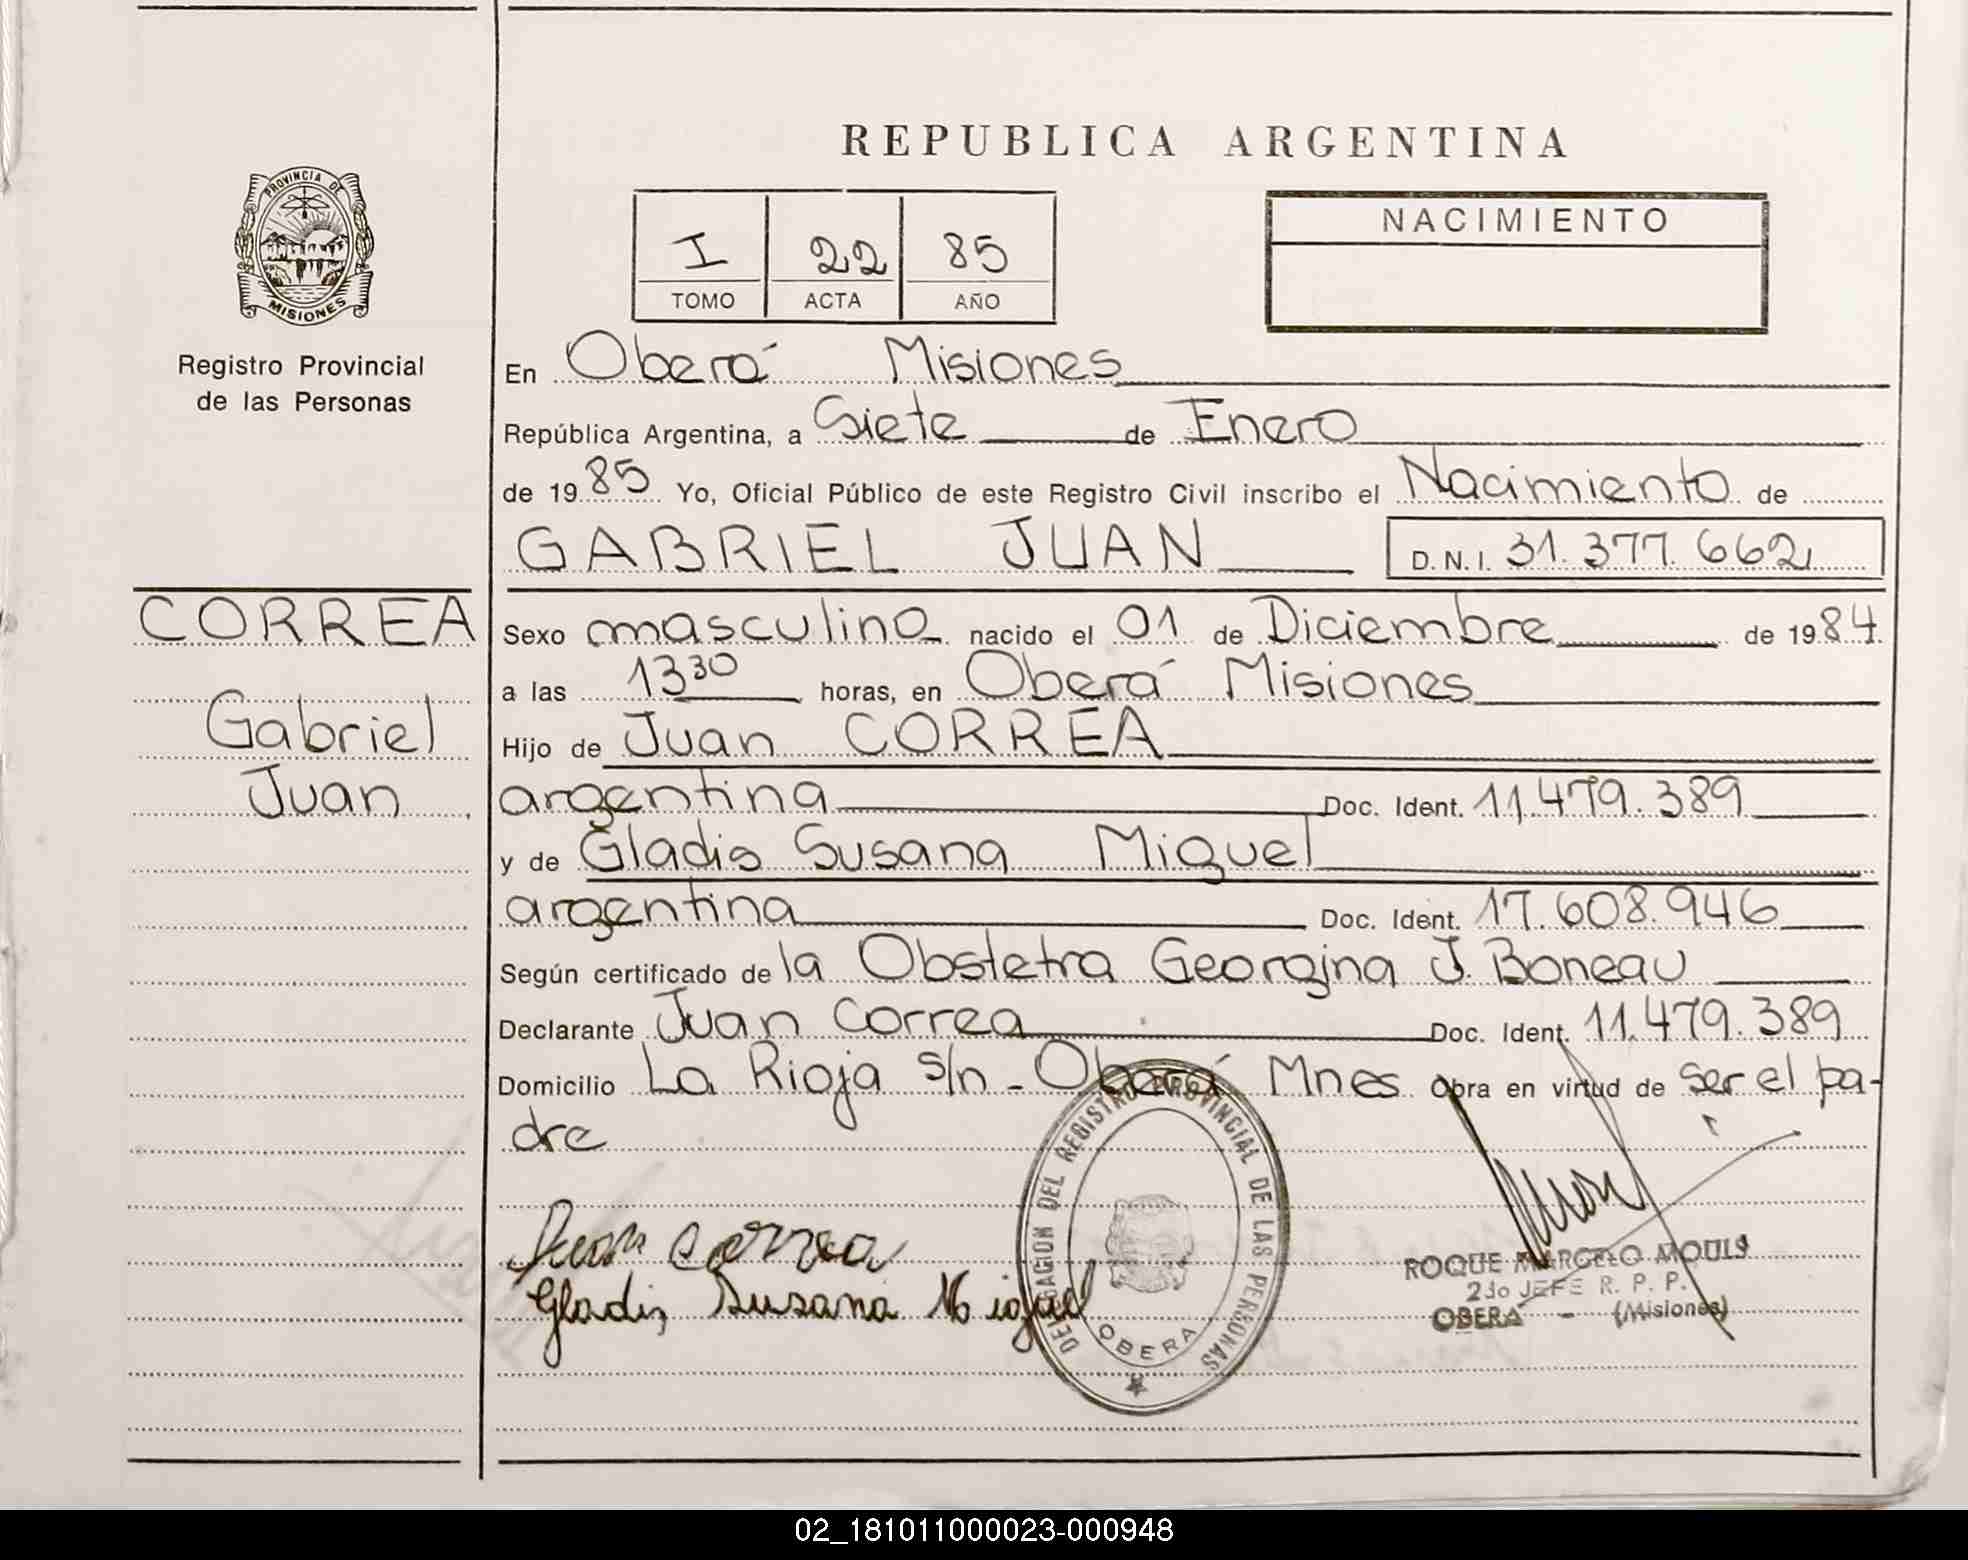 REPUBLICA ARGENTINA
PROVINCIA DE
MISIONES
Registro Provincial
de las Personas
I 22 85
TOMO ACTA AÑO
NACIMIENTO
En Oberá Misiones
República Argentina, a Siete de Enero
de 1985 Yo, Oficial Público de este Registro Civil inscribo el Nacimiento de
GABRIEL JUAN D.N.I. 31.377.662
CORREA
Gabriel
Juan
Sexo masculino nacido el 01 de Diciembre de 1984
a las 13 30 horas, en Oberá Misiones
Hijo de Juan CORREA
argentina Doc. Ident. 11.479.389
y de Gladis Susana Miguel
argentina Doc. Ident. 17.608.946
Según certificado de la Obstetra Georgina J. Boneau
Declarante Juan Correa Doc. Ident. 11.479.389
Domicilio La Rioja s/n - Oberá Mnes Obra en virtud de ser el pa-
dre
Juan Correa
Gladis Susana Miguel
DELEGACION DEL REGISTRO PROVINCIAL DE LAS PERSONAS
OBERA
ROQUE MARCELO MOULS
2do JEFE R. P. P.
OBERA - (Misiones)
02_181011000023-000948